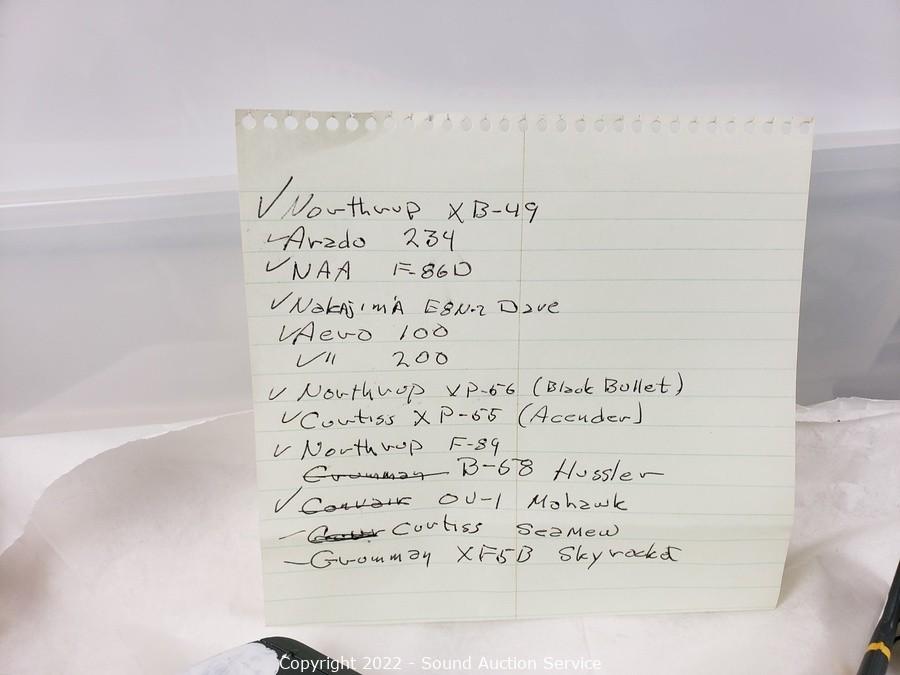 ✓ Northrup XB-49
✓ Arado 234
✓ NAA F-86D
✓ Nakajima E8N-2 Dave
✓ Aero 100
✓ " 200
✓ Northrup XP-56 (Black Bullet)
✓ Curtiss XP-55 (Acender)
✓ Northrup F-89
Grumman B-58 Hussler
✓ Convair OU-1 Mohawk
– Curtiss SeaMew
– Grumman XF5B Skyrocket
Copyright 2022 - Sound Auction Service